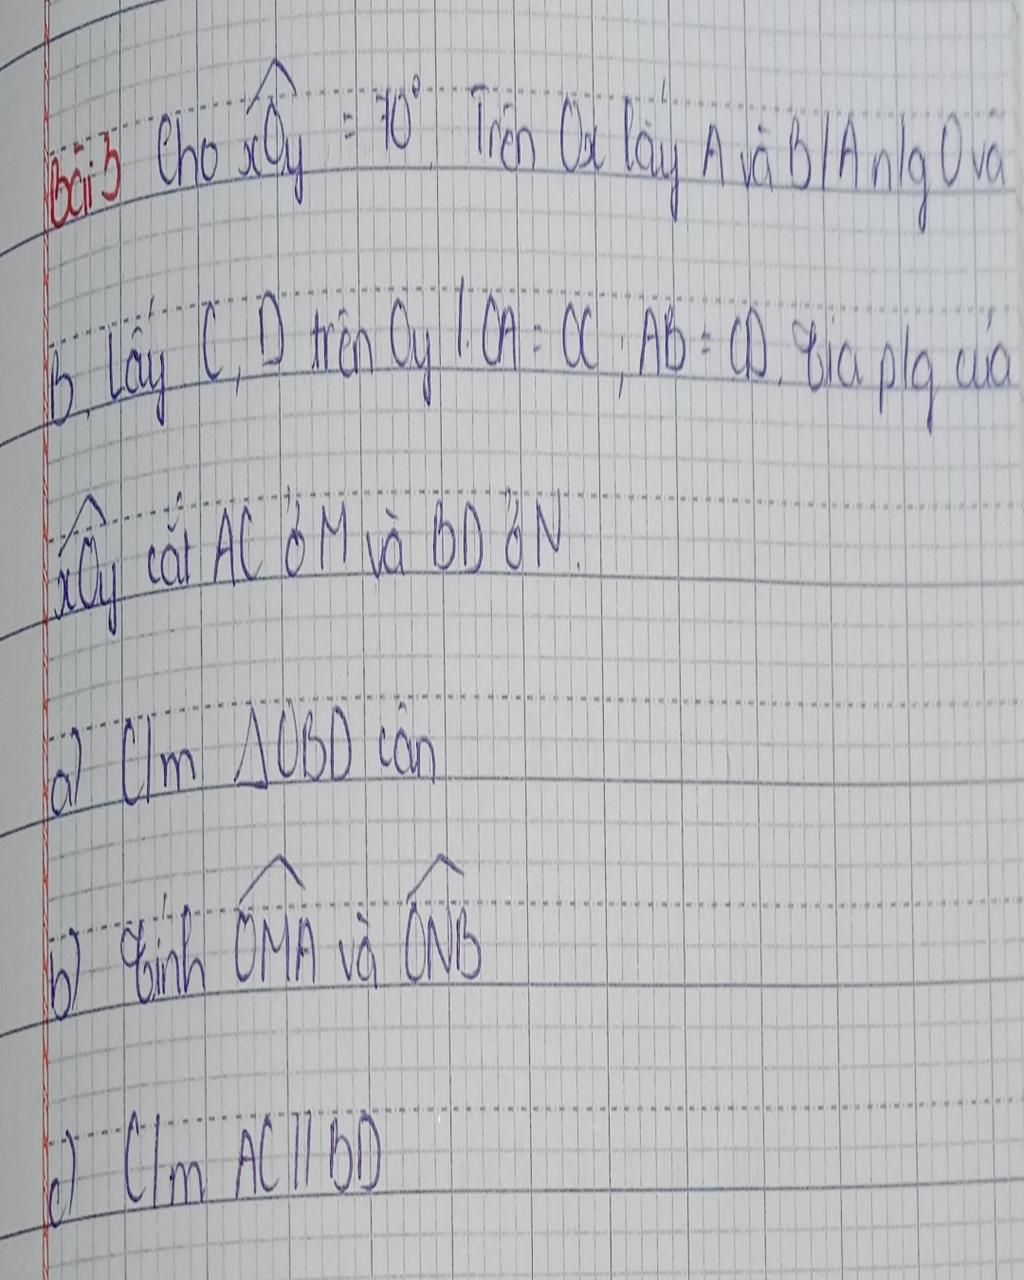 Bài 3 Cho xÔy = 70° Trên Ox lấy A và B / A n/g O và
B. Lấy C, D trên Oy /. OA = OC, AB = CD. Tia p/g của
xÔy cắt AC ở M và BD ở N.
a) C/m ΔOBD cân
b) Tính OM̂A và ON̂B
c) C/m AC // BD